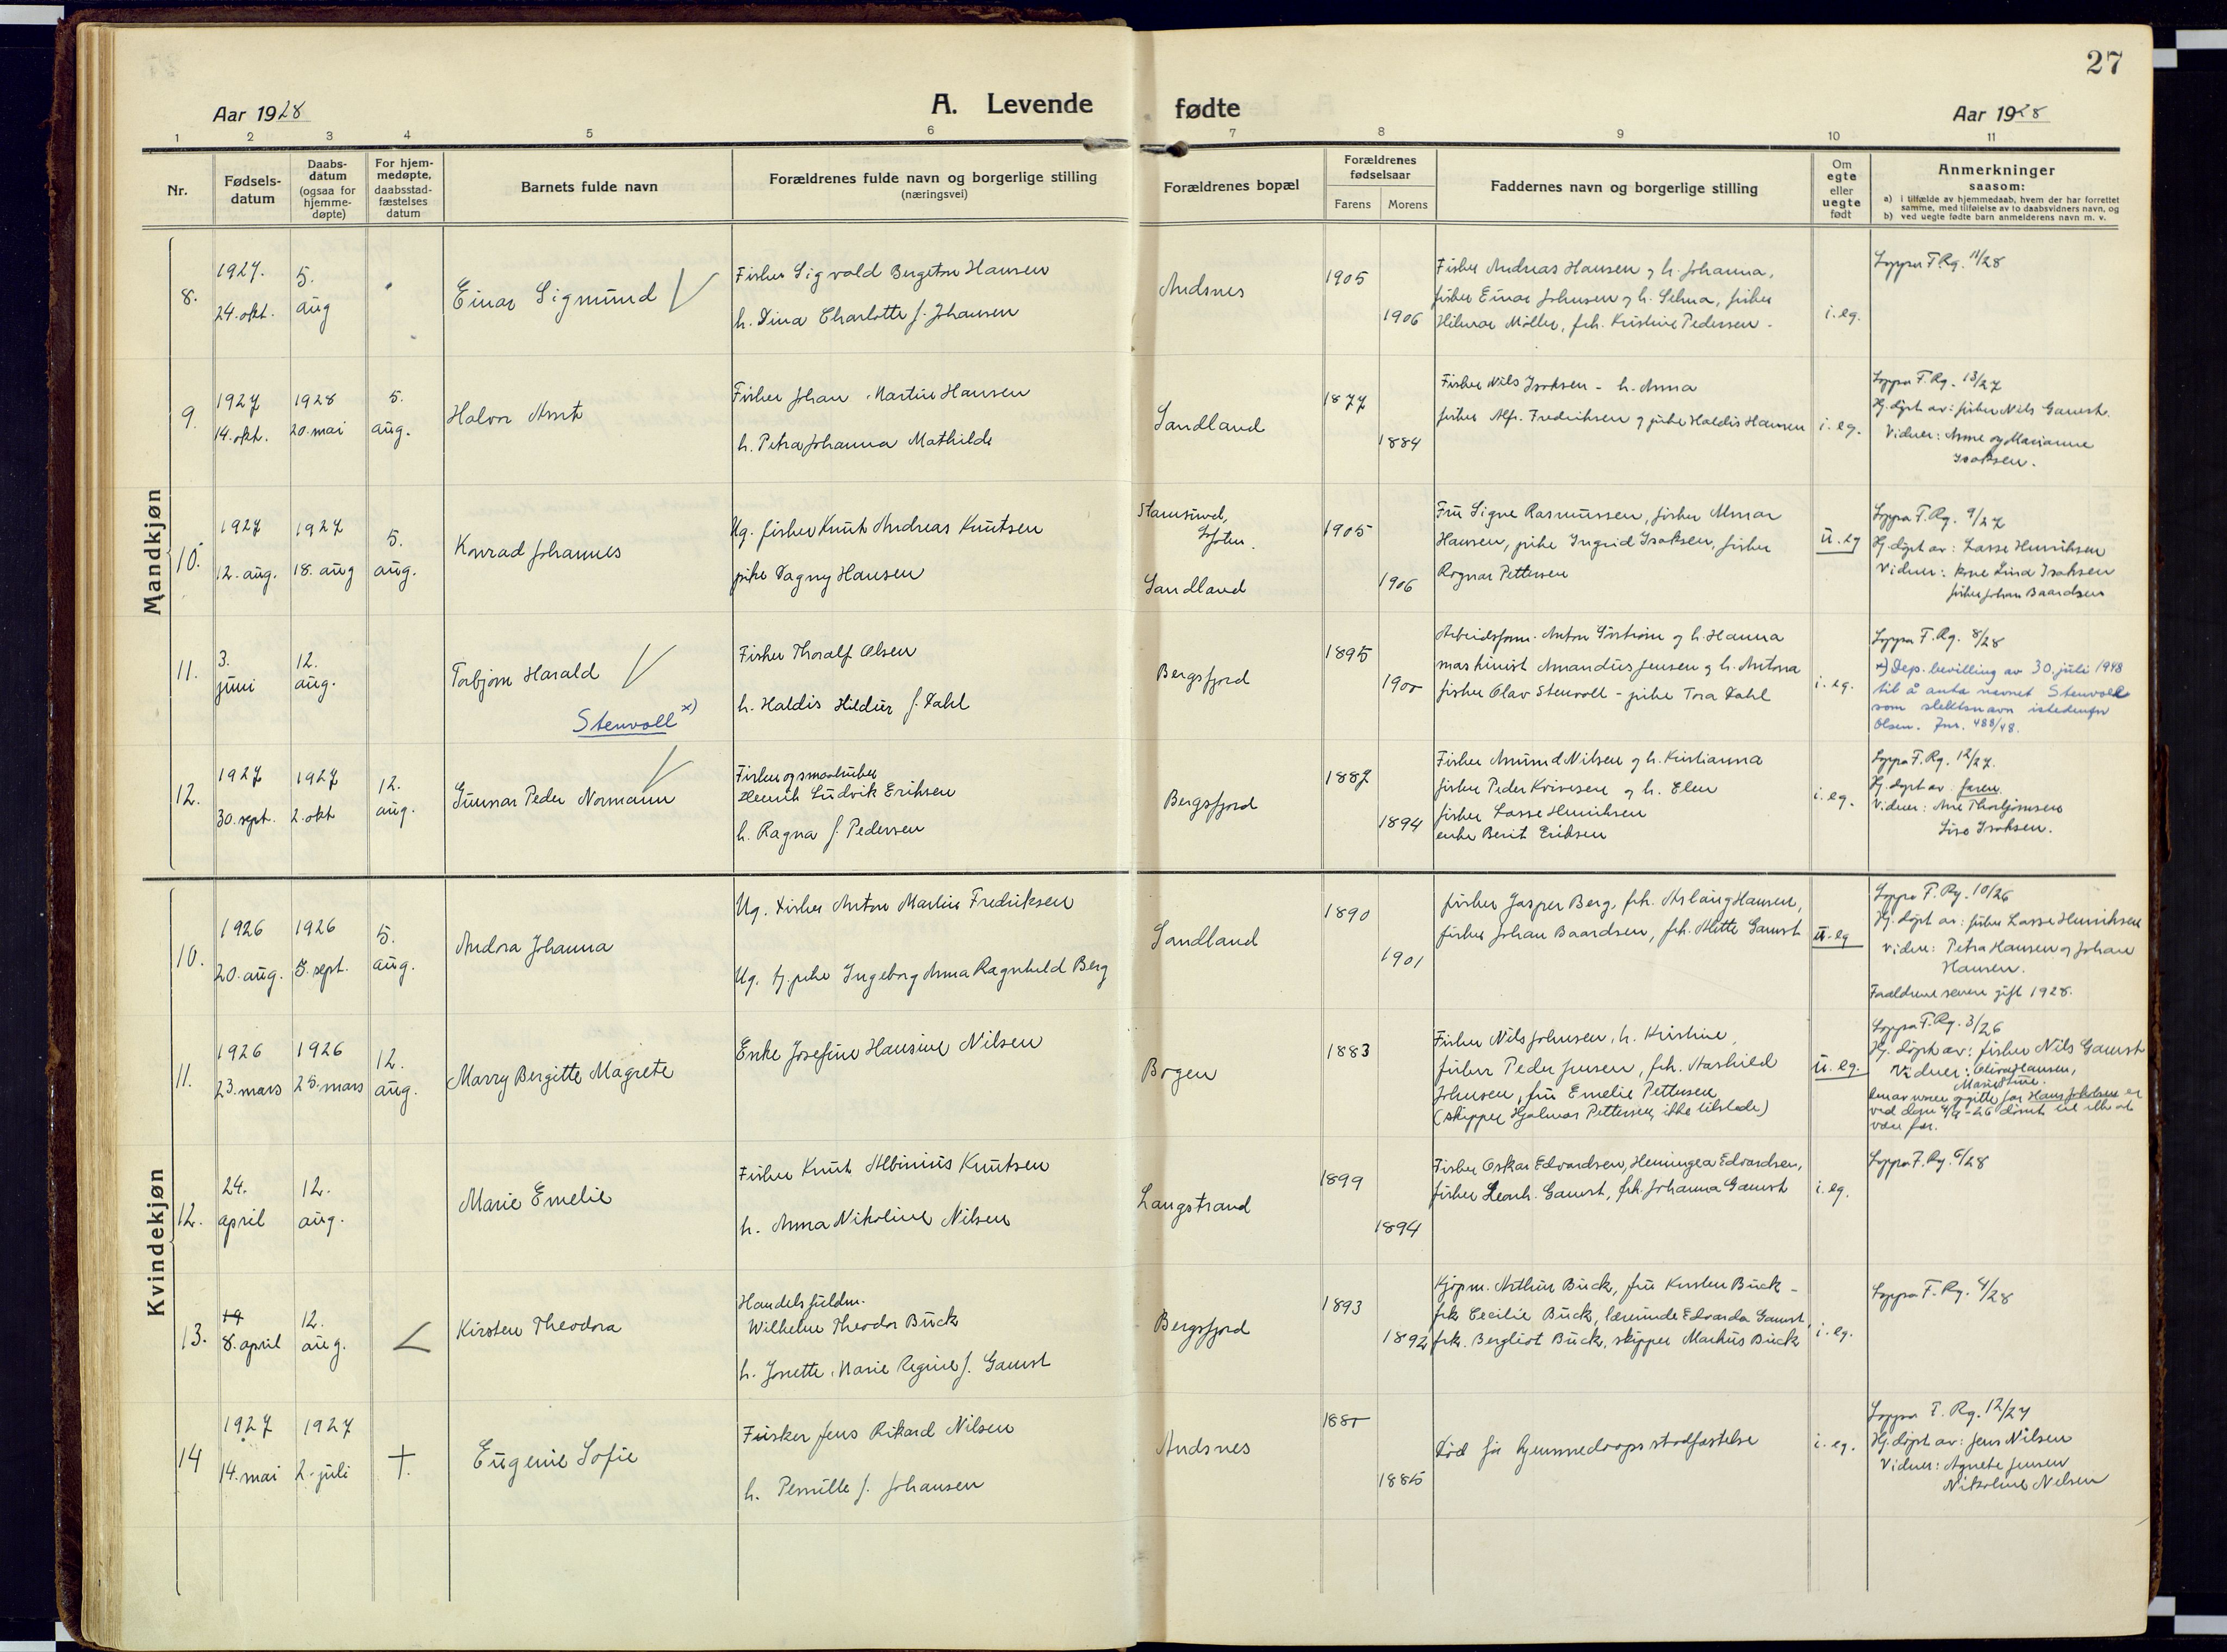 27
Aar 1928
A. Levende fødte
Aar 1928
1 2 3 4 5 6 7 8 9 10 11
Nr.
Fødsels-
datum
Daabs-
datum
(ogsaa for
hjemme-
døpte)
For hjem-
medøpte,
daabsstad-
fæstelses
datum
Barnets fulde navn
Forældrenes fulde navn og borgerlige stilling
(næringsvei)
Forældrenes bopæl
Forældrenes
fødselsaar
Farens Morens
Faddernes navn og borgerlige stilling
Om
egte
eller
uegte
født
Anmerkninger
saasom:
a) i tilfælde av hjemmedaab, hvem der har forrettet
samme, med tilføielse av to daabsvidners navn, og
b) ved uegte fødte barn anmelderens navn m. v.
Mandkjøn
8.
1927.
24. okt.
5.
aug
Einar Sigmund
Fisker Sigvald Bergeton Hansen
h. Dina Charlotte f. Johansen
Andsnes
1905
1906
Fisker Andreas Hansen og h. Johanna,
fisker Einar Johnsen og h. Selma, fisker
Hilmar Møller, frk. Kristine Pedersen.
i. eg.
Loppa F. Rg. 11/28
9.
1927
14. okt.
1928
20. mai
5.
aug.
Halvor Arnt
Fisker Johan Martin Hansen
h. Petra Johanna Mathilde
Sandland
1877
1884
Fisker Nils Isaksen - h. Anna
fisker Alf. Fredriksen og pike Haldis Hansen
i. eg.
Loppa F. Rg. 13/27
Hj. døpt av: fisker Nils Gamst.
Vidner: Anne og Marianne
Isaksen.
10.
1927
12. aug.
1927
18. aug
5.
aug.
Konrad Johannes
Ug. fisker Knut Andreas Knutsen
pike Dagny Hansen
Stamsund,
Lofoten.
Sandland
1905
1906
Fru Signe Rasmussen, fisker Almar
Hansen, pike Ingrid Isaksen, fisker
Ragnar Pettersen
u. eg
Loppa F. Rg. 9/27
Hj. døpt av: Lasse Henriksen
Vidner: kone Lina Isaksen
fisker Johan Baardsen
11.
3.
juni
12.
aug.
Torbjørn Harald
Stenvoll x)
Fisker Thoralf Olsen
h. Haldis Hildur f. Dahl
Bergsfjord
1895
1900
Arbeidsform. Anton Sørstrøm og h. Hanna
maskinist Amandus Jensen og h. Antona
fisker Olav Stenvoll - pike Tora Dahl
i. eg.
Loppa F. Rg. 8/28
x) Dep. bevilling av 30. juli 1948
til å anta navnet Stenvoll
som slektsnavn istedenfor
Olsen. Jnr. 488/48.
12.
1927
30. sept.
1927
2. okt
12.
aug.
Gunnar Peder Normann
Fisker og smaabruker
Henrik Ludvik Eriksen
h. Ragna f. Pedersen
Bergsfjord
1887
1894
Fisker Amund Nilsen og h. Kristianna
fisker Peder Kvivesen og h. Elen
fisker Lasse Henriksen
enke Berit Eriksen
i. eg.
Loppa F. Rg. 12/27.
Hj. døpt av faren.
Vidner: Ane Thorbjørnsen
Lise Isaksen.
Kvindekjøn
10.
1926
20. aug.
1926
5. sept.
5.
aug.
Andora Johanna
Ug. Fisker Anton Martin Fredriksen
Ug. tj. pike Ingeborg Anna Ragnhild Berg
Sandland
1890
1901
fisker Jasper Berg, frk. Aslaug Hansen,
fisker Johan Baardsen, frk. Mette Gamst
u. eg
Loppa F. Rg. 10/26
Hj. døpt av: fisker Lasse Henriksen
Vidner: Petra Hansen og Johan
Hansen.
Forældrene senere gift 1928.
11.
1926
23. mars
1926
25. mars
12.
aug.
Marry Bergitte Magrete
Enke Josefine Hansine Nilsen
Bogen
1883
Fisker Nils Johnsen, h. Kristine,
fisker Peder Jensen, frk. Aashild
Johnsen, fru Emelie Pettersen
(skipper Hjalmar Pettersen, ikke tilstede)
u. eg.
Loppa F. Rg. 3/26
Hj. døpt av: fisker Nils Gamst
Vidner: Oliva Hansen,
Marie
far Hans
er
ved dom
dømt til ikke at
være far.
12.
24.
april
12.
aug.
Marie Emelie
Fisker Knut Albinius Knutsen
h. Anna Nikoline Nilsen
Langstrand
1899
1894
Fisker Oskar Edvardsen, Henninga Edvardsen,
fisker Leonh. Gamst, frk. Johanna Gamst
i. eg.
Loppa F. Rg. 6/28
13.
19
8. april
12.
aug.
Kirsten Theodora
Handelsfuldm.
Wilhelm Theodor Buck
h. Jonette Marie Regine f. Gamst
Bergsfjord
1893
1892
Kjøpm. Arthur Buck, fru Kirsten Buck -
frk Cecilie Buck, lærerinde Edvarda Gamst,
frk. Bergliot Buck, skipper Markus Buck
i. eg.
Loppa F. Rg. 4/28
14
1927
14. mai
1927
2. juli
†.
Eugenie Sofie
Fisker Jens Rikard Nilsen
h. Pernille f. Johansen
Andsnes
1885
Død før hjemmedaapsstadfæstelse
i. eg.
Loppa F. Rg. 12/27
Hj. døpt av: Jens Nilsen
Vidner: Agnete Jensen
Nikoline Nilsen